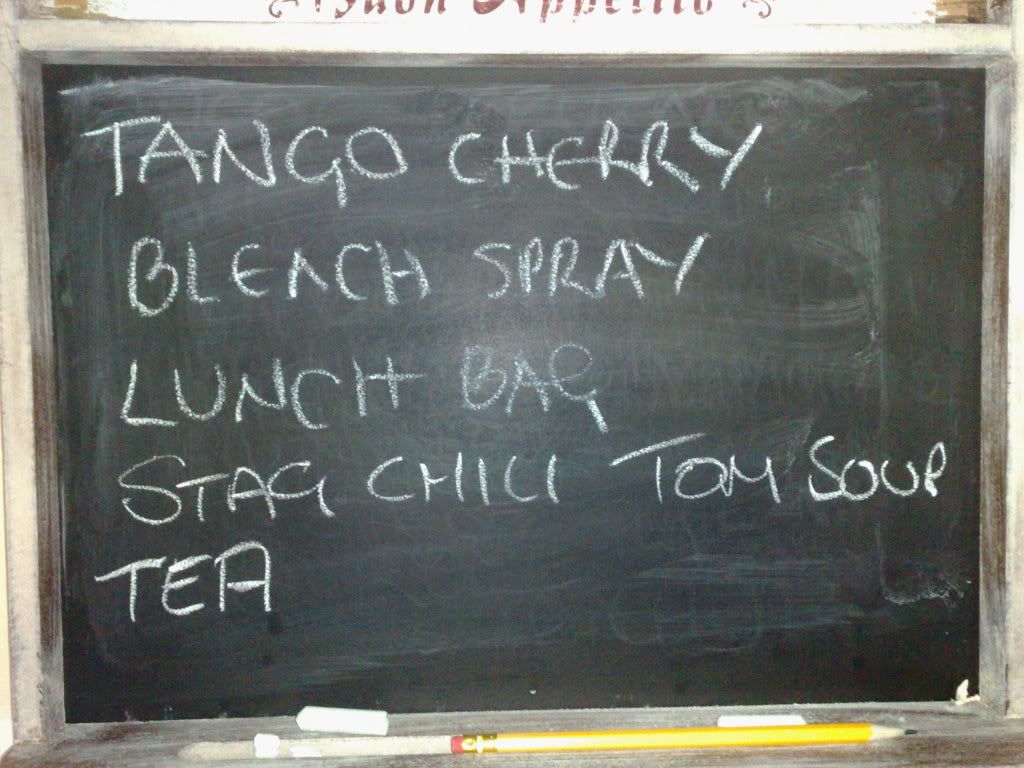 Buon Appetito
TANGO CHERRY
BLEACH SPRAY
LUNCH BAG
STAG CHILI TOM SOUP
TEA